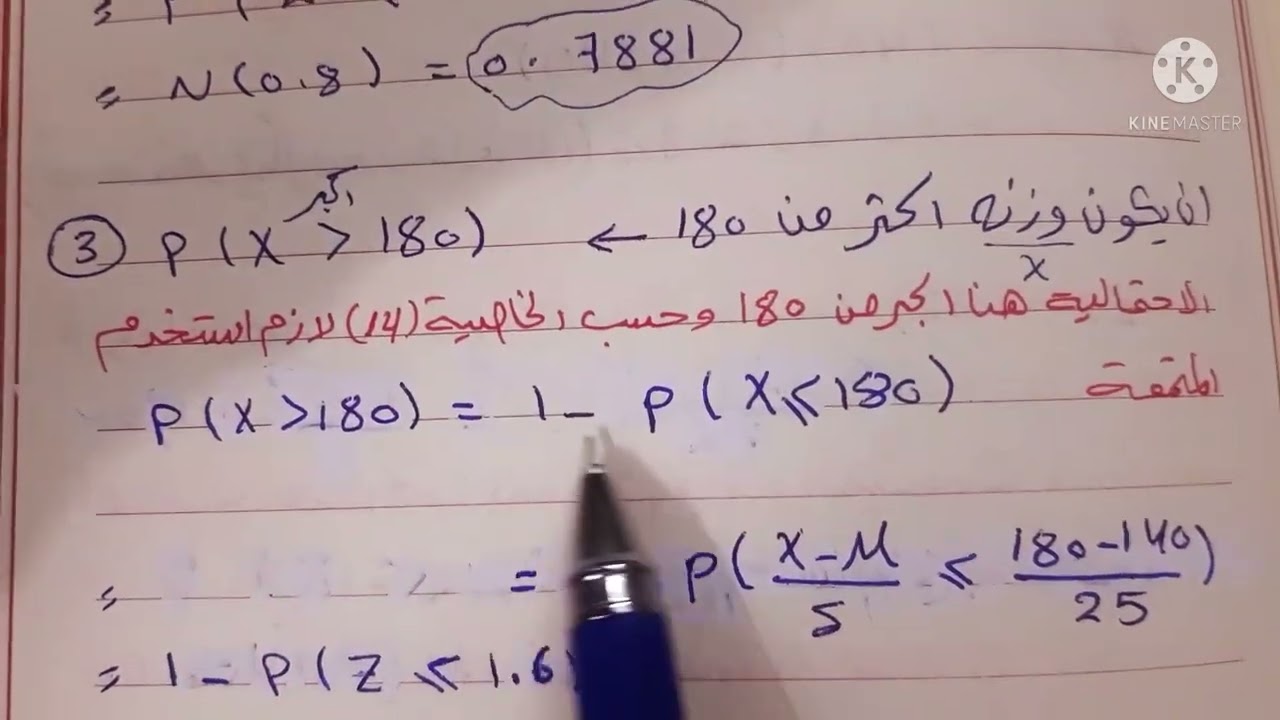 = N(0.8) = 0.7881
KINEMASTER
اكبر
③ P(X > 180) ← ان يكون وزنه اكثر من 180
X
الاحتمالية هنا اكبر من 180 وحسب الخاصية (14) لازم استخدم
المتممة
P(X>180) = 1 - P(X ≤ 180)
= P( X-M / S ≤ 180-140 / 25 )
= 1 - P(Z ≤ 1.6)